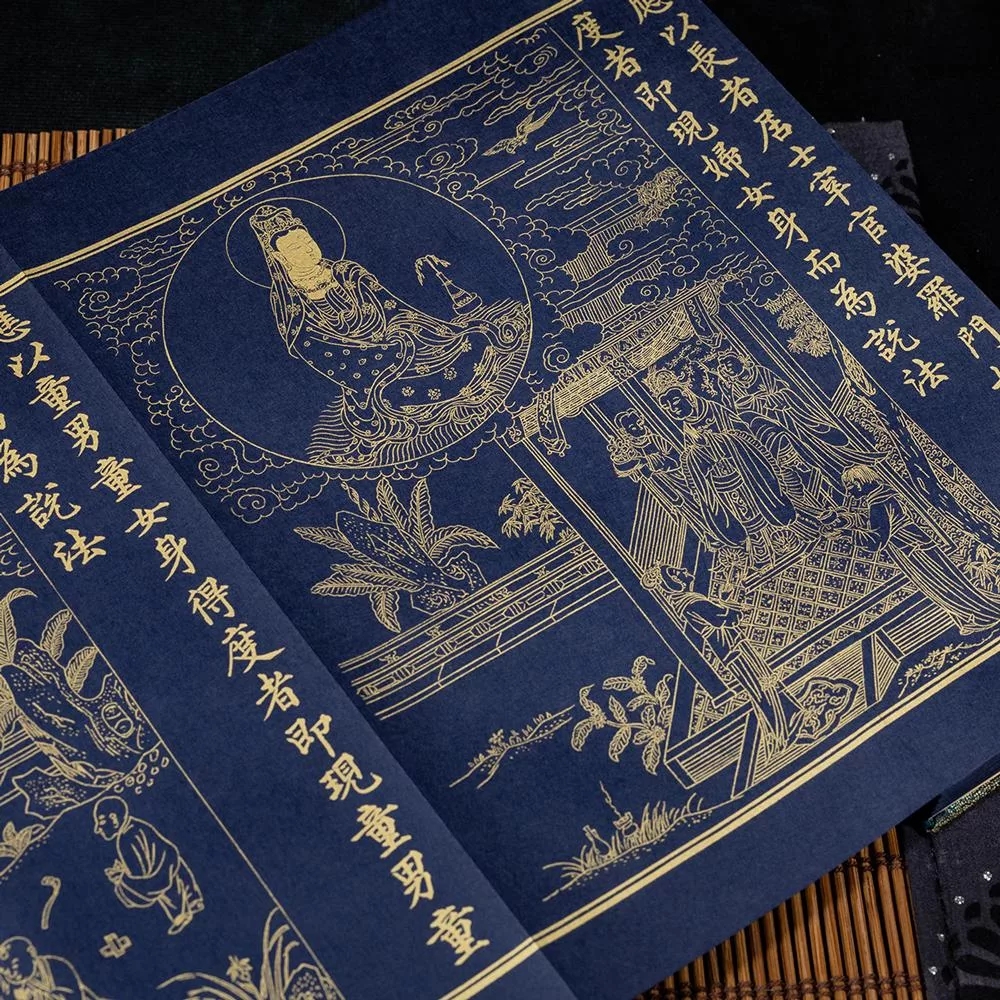 應以長者居士宰官婆羅門
度者即現婦女身而為說法
應以童男童女身得度者即現童男童
為說法